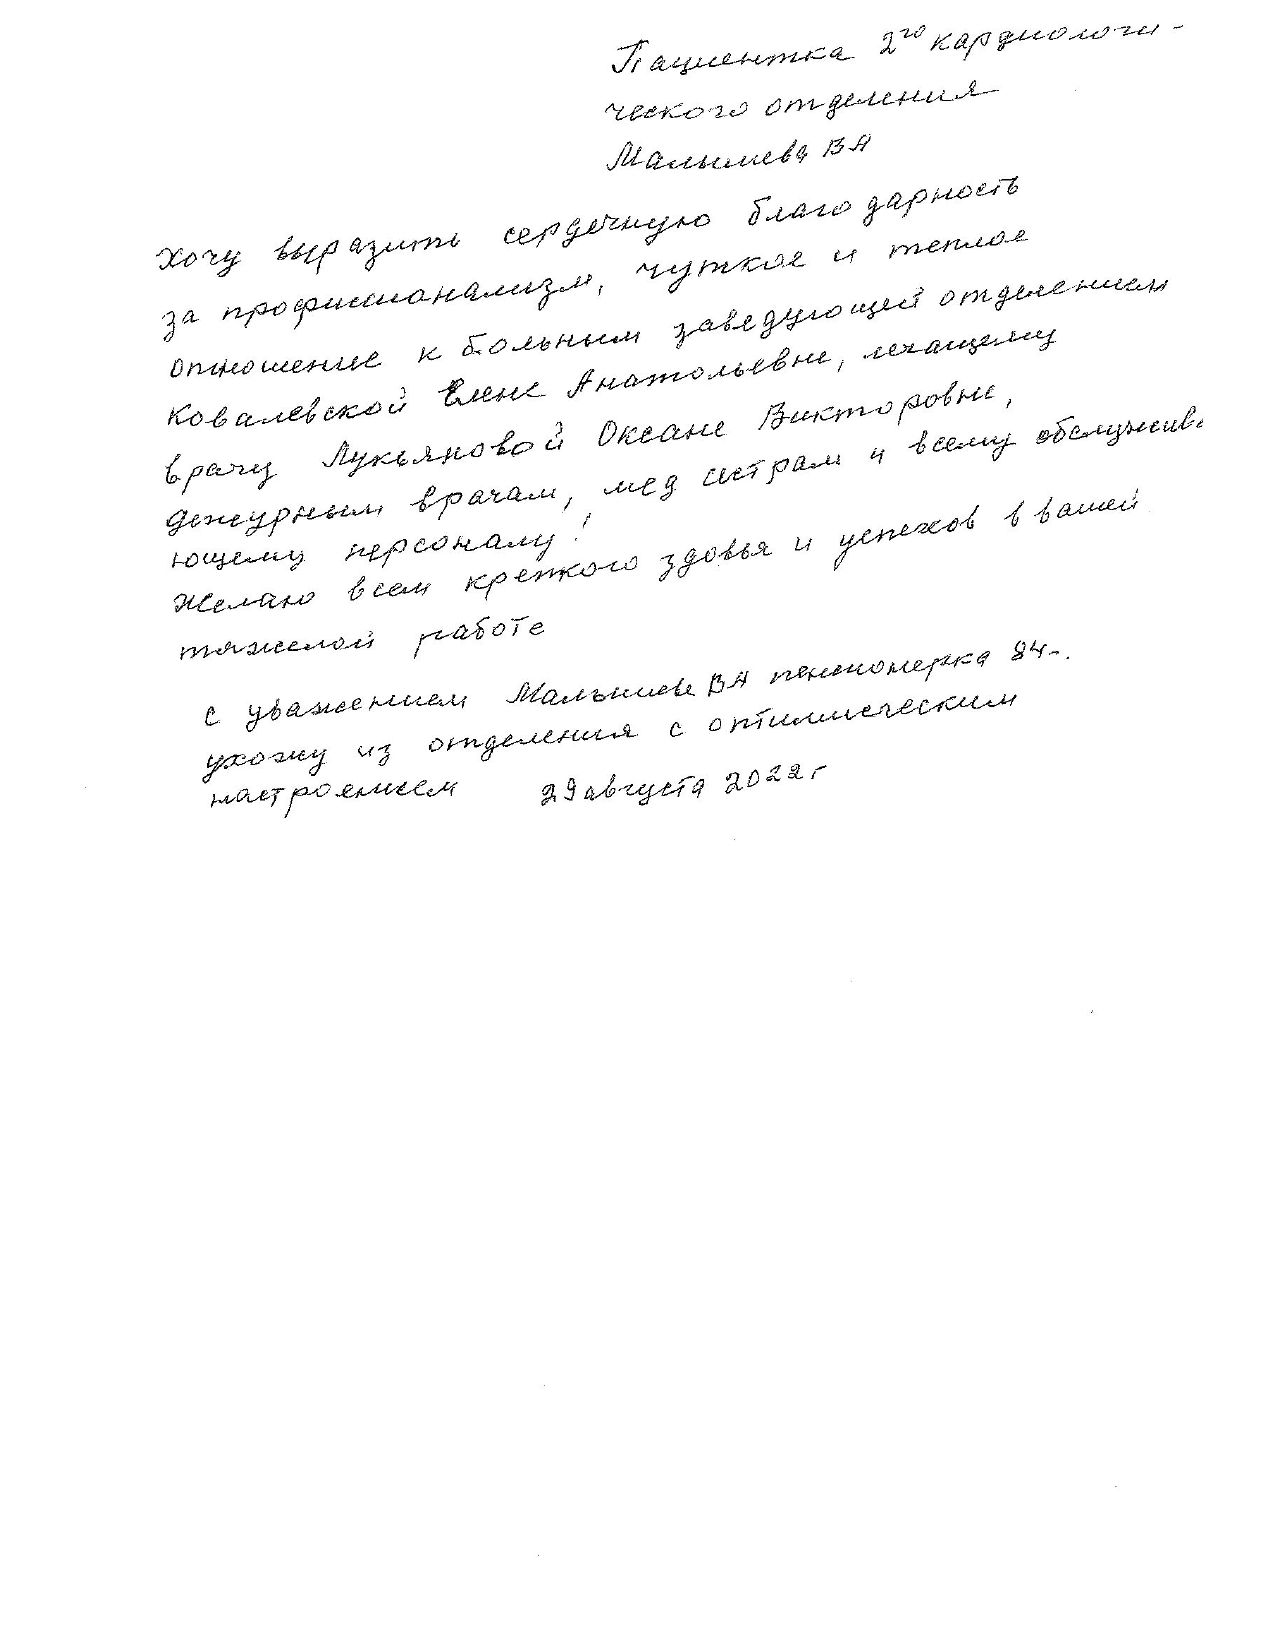 Пациентка 2го кардиологи-
ческого отделения
Малышева ВА
хочу выразить сердечную благодарность
за профишионализм, чуткое и теплое
отношение к больным заведующей отделением
Ковалевской Елене Анатольевне, лечащему
врачу Лукьяновой Оксане Викторовне,
дежурным врачам, мед систрам и всему обслужива
ющему персоналу!
Желаю всем крепкого здовья и успехов в вашей
тяжелой работе
с уважением Малышева ВА пенсионерка 84-.
ухожу из отделения с оптимическим
настроением 29 августа 2022 г